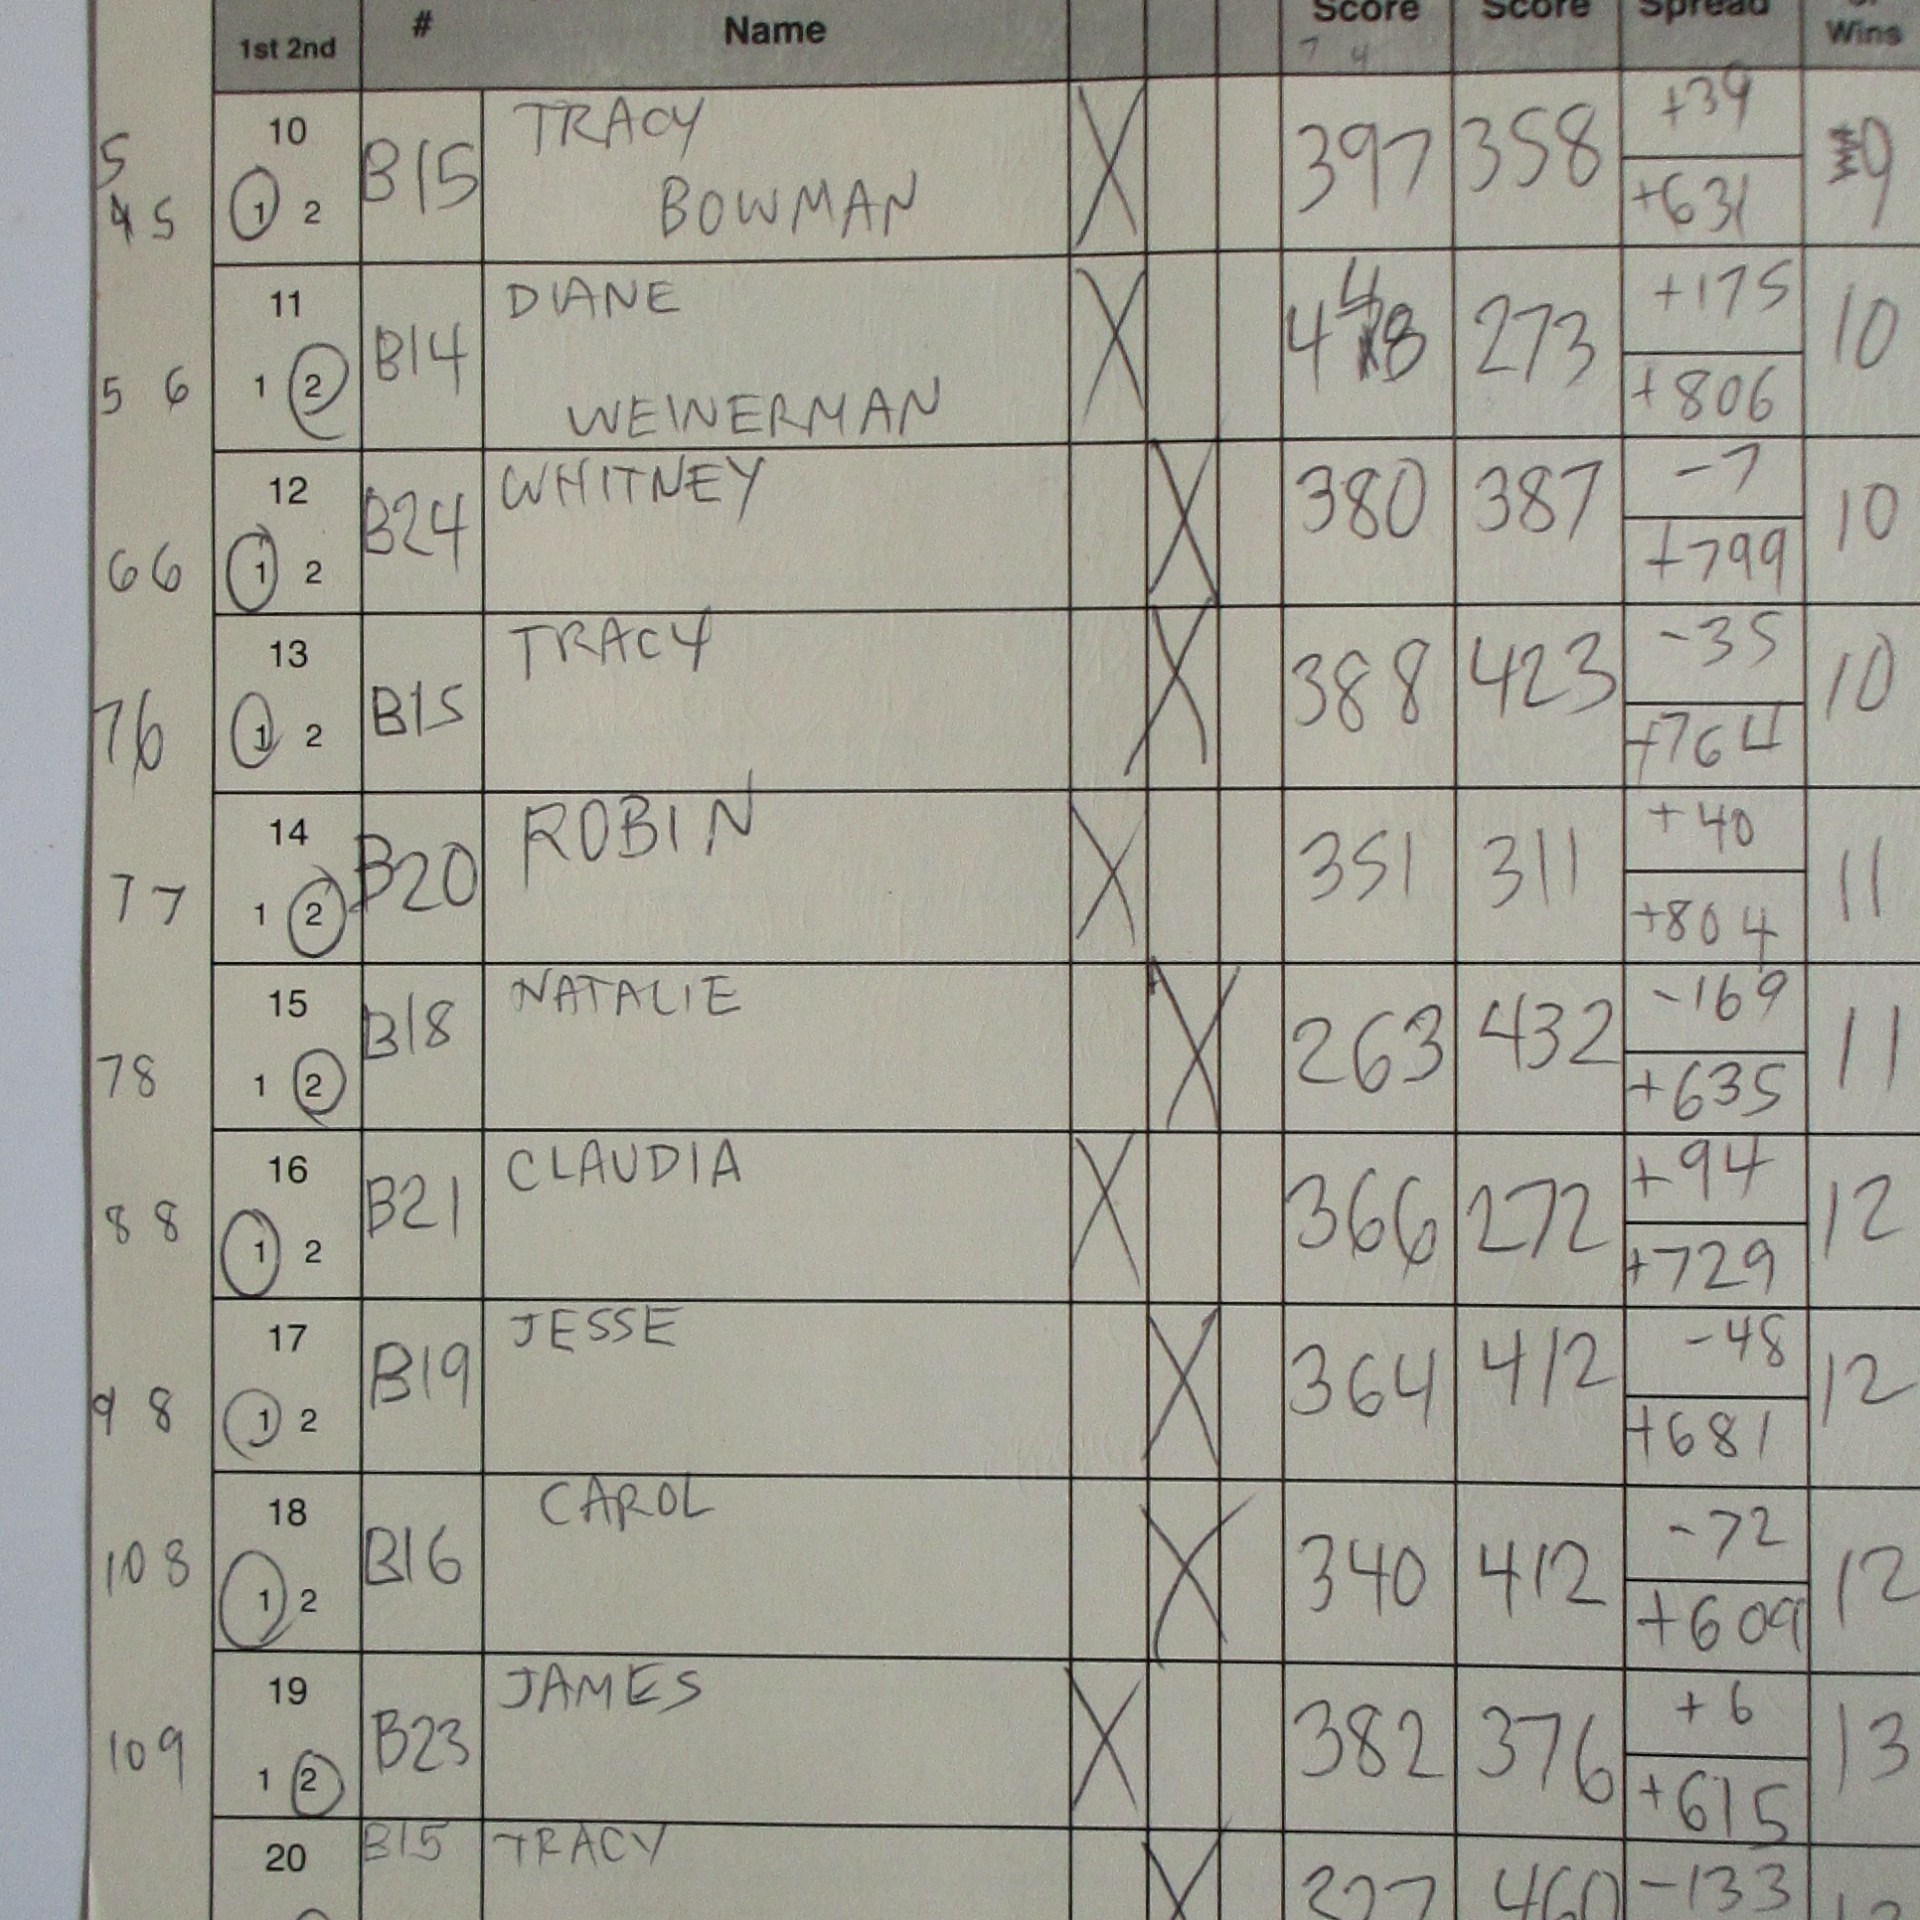 Score Score Spread
1st 2nd # Name Wins
7 4
10 TRACY +39
5 B15 397 358 9
4 5 1 2 BOWMAN +631
11 DIANE +175
B14 448 273 10
5 6 1 2 WEINERMAN +806
12 WHITNEY -7
B24 380 387 10
6 6 1 2 +799
13 TRACY -35
B15 388 423 10
7 6 1 2 +764
14 ROBIN +40
B20 351 311 11
7 7 1 2 +804
15 NATALIE -169
B18 263 432 11
7 8 1 2 +635
16 CLAUDIA +94
B21 366 272 12
8 8 1 2 +729
17 JESSE -48
B19 364 412 12
9 8 1 2 +681
18 CAROL -72
B16 340 412 12
10 8 1 2 +609
19 JAMES +6
B23 382 376 13
10 9 1 2 +615
20 B15 TRACY 460 -133